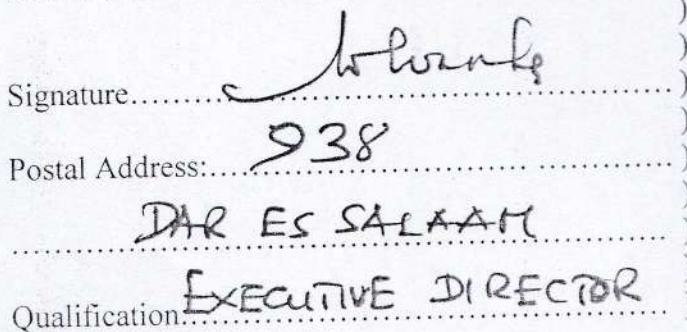 Signature.............................. )
Postal Address: 938 )
DAR ES SALAAM )
Qualification EXECUTIVE DIRECTOR )